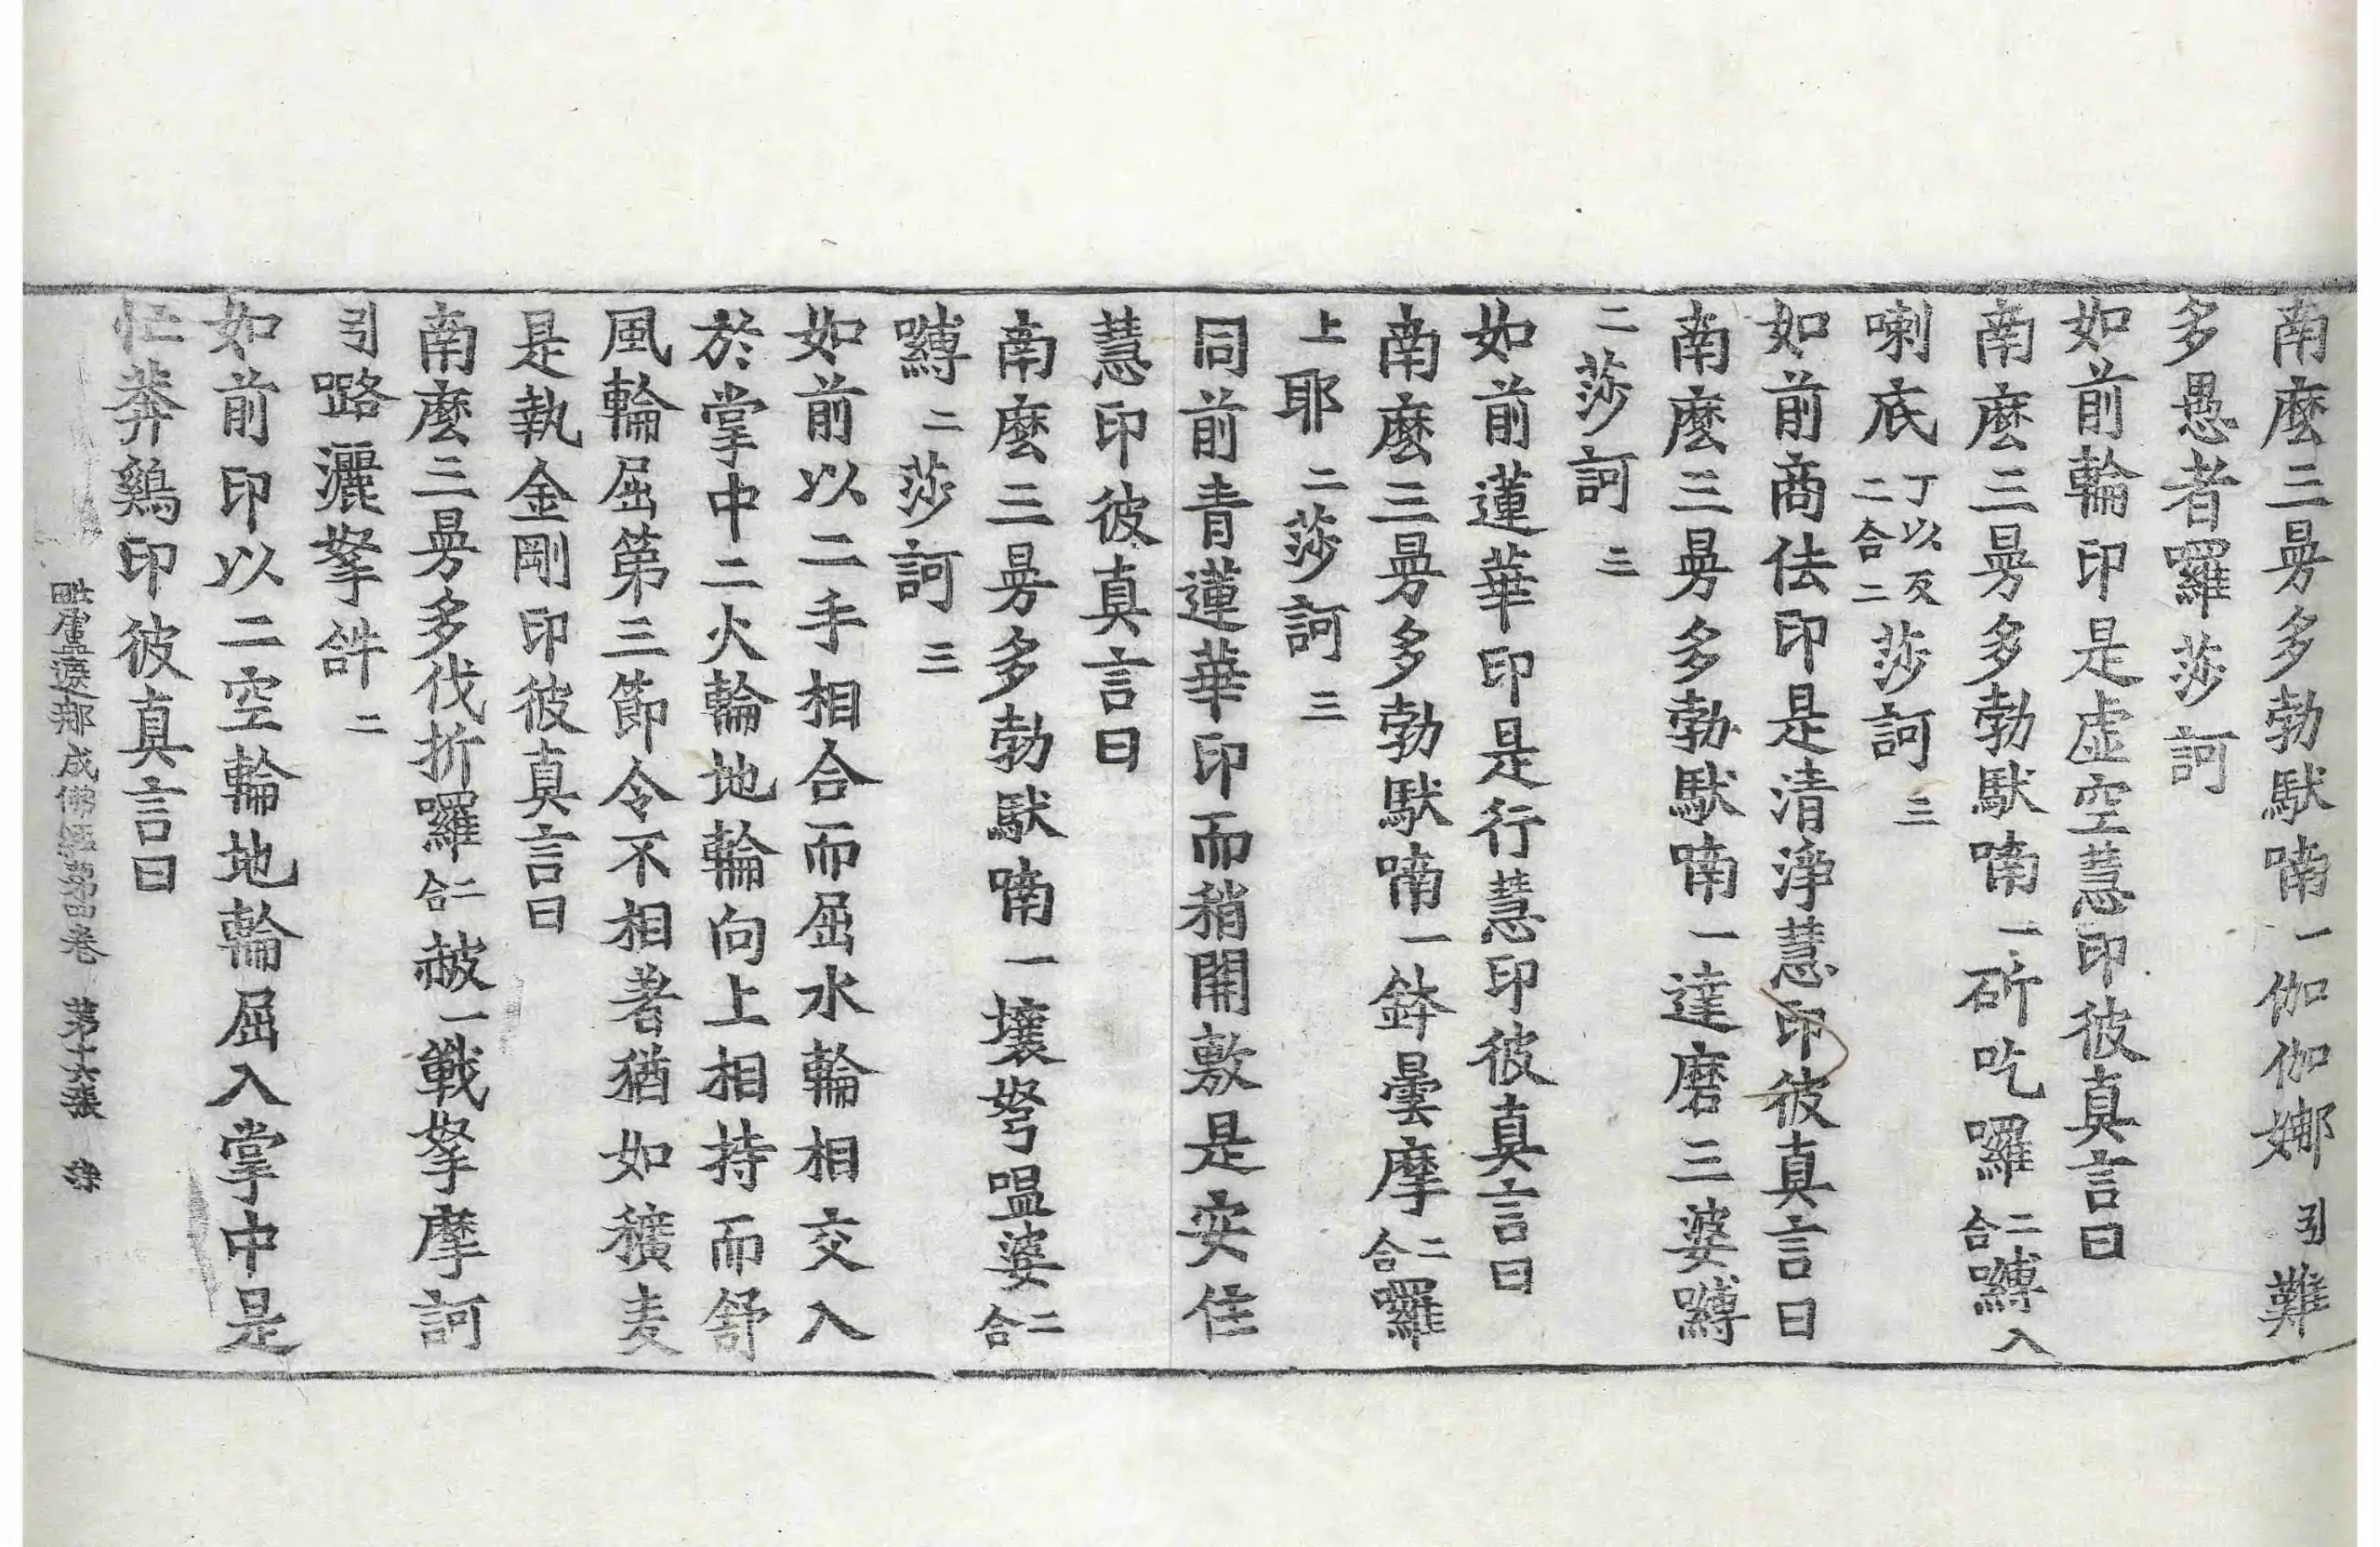 南麽三曼多勃馱喃一伽伽娜引難
多愚者囉莎訶
如前輪印是虛空慧印彼真言曰
南麽三曼多勃馱喃一斫吃囉二合嚩入
喇底丁以反二合二莎訶三
如前商佉印是清淨慧印彼真言曰
南麽三曼多勃馱喃一達磨三婆嚩
二莎訶三
如前蓮華印是行慧印彼真言曰
南麽三曼多勃馱喃一鉢曇摩二合羅
上耶二莎訶三
同前青蓮華印而稍開敷是安住
慧印彼真言曰
南麽三曼多勃馱喃一壤弩嗢婆二合
嚩二莎訶三
如前以二手相合而屈水輪相交入
於掌中二火輪地輪向上相持而舒
風輪屈第三節令不相著猶如穬麦
是執金剛印彼真言曰
南麽三曼多伐折囉二合赧一戰拏摩訶
引嚕灑拏𤙖二
如前印以二空輪地輪屈入掌中是
忙莽鷄印彼真言曰
毗盧遮那成佛經第四卷 第十六張 染